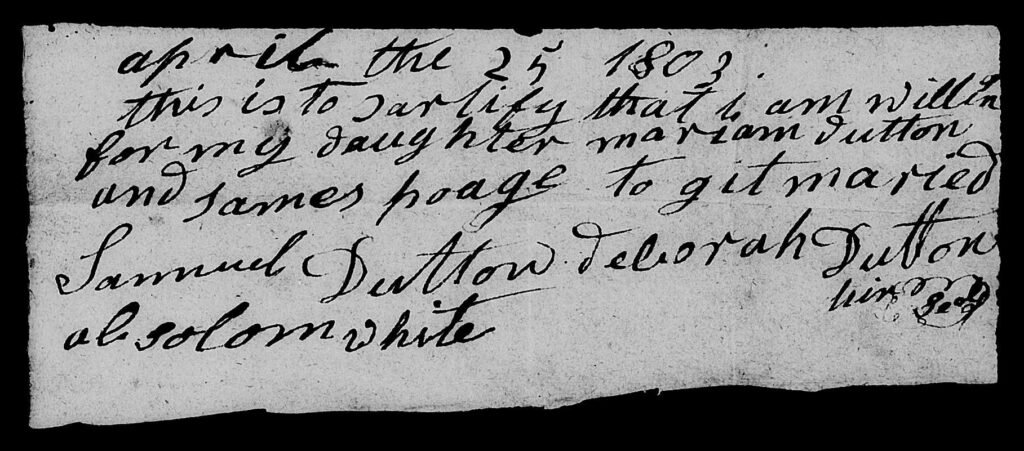 april the 25 1803
this is to sartify that i am willin
for my daughter mariam dutton
and James poage to git maried
Samuel Dutton deborah Dutton
hir seal
absolom white